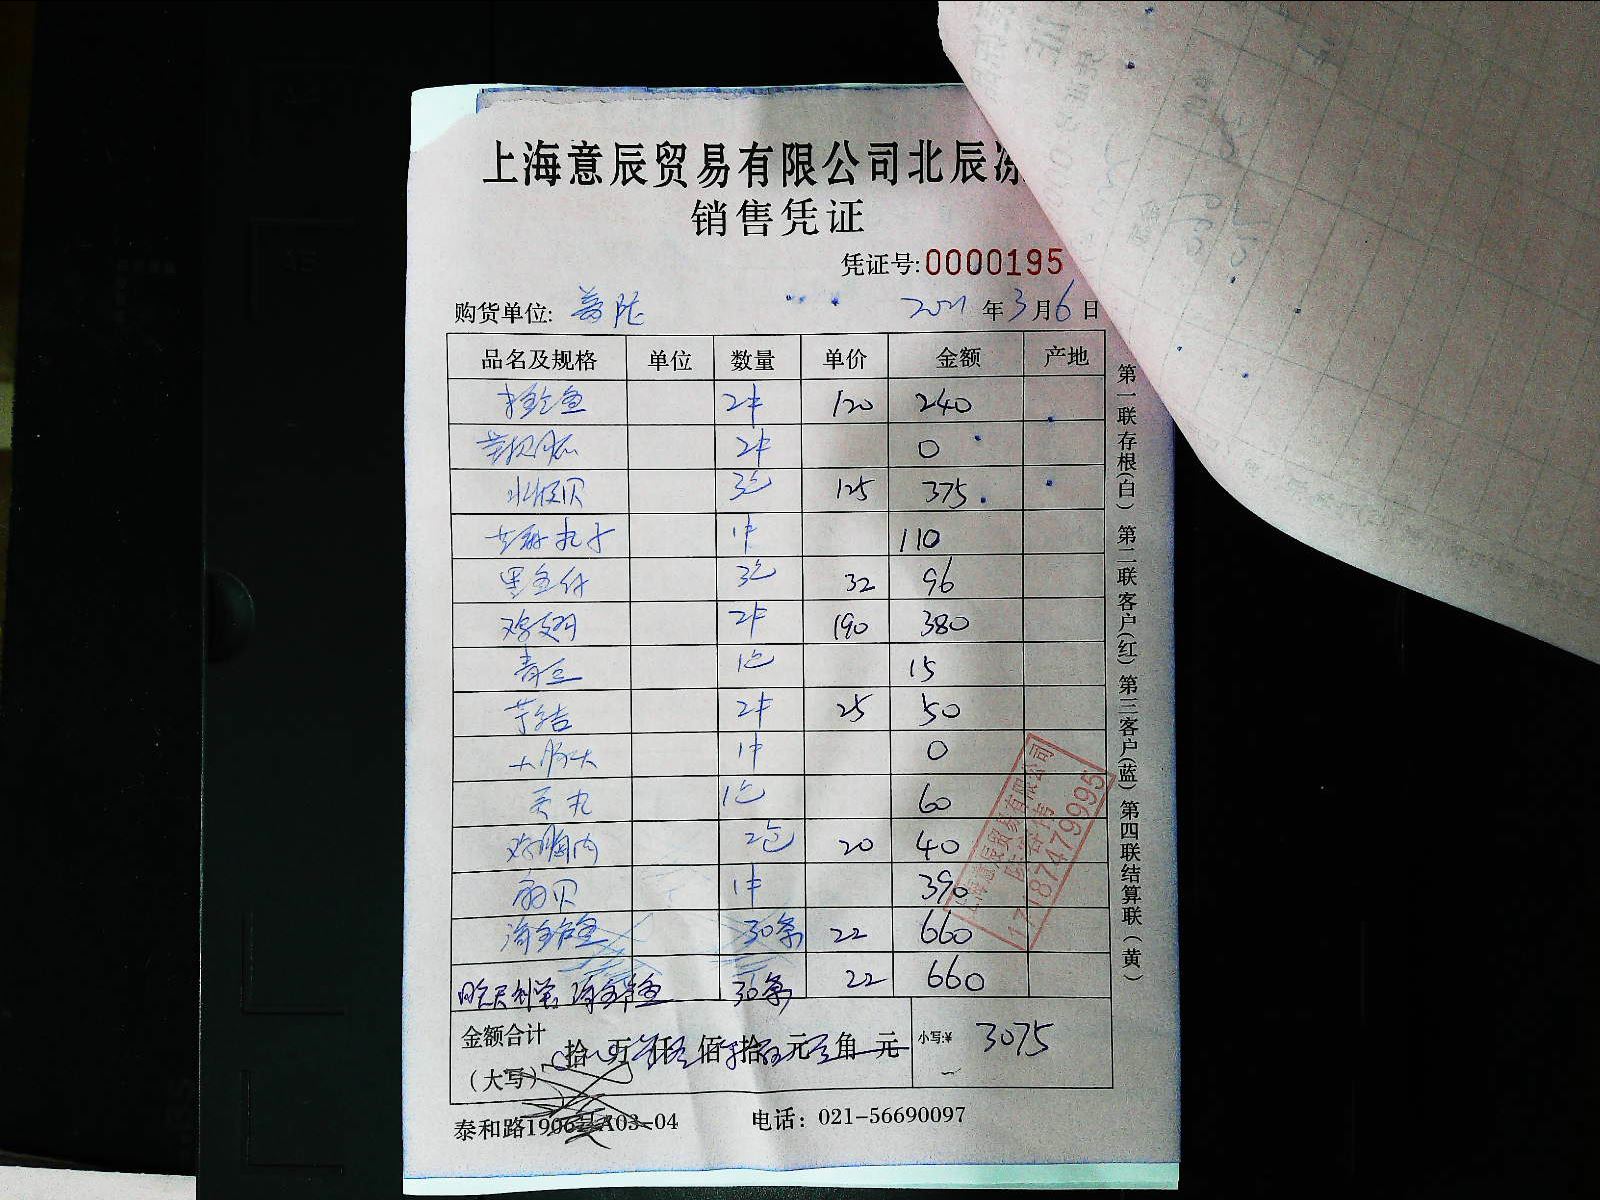 上海意辰贸易有限公司北辰冻
销售凭证
凭证号:0000195
购货单位: 普陀 2021年3月6日
品名及规格 单位 数量 单价 金额 产地
2件 120 240
2件 0
水 贝 3包 125 375
丸子 1件 110
3包 32 96
鸡翅 2件 190 380
青豆 1包 15
2件 25 50
1件 0
贡丸 1包 60
鸡胸肉 2包 20 40
扇贝 1件 390
海鲈鱼 30条 22 660
昨天 海鲈鱼 30条 22 660
金额合计
(大写) 拾 万 仟 佰 拾 元 角 元 小写:¥ 3075
泰和路1906号A03-04 电话: 021-56690097
第一联存根(白) 第二联客户(红) 第三客户(蓝) 第四联结算联(黄)
上海意辰贸易有限公司
17187479995